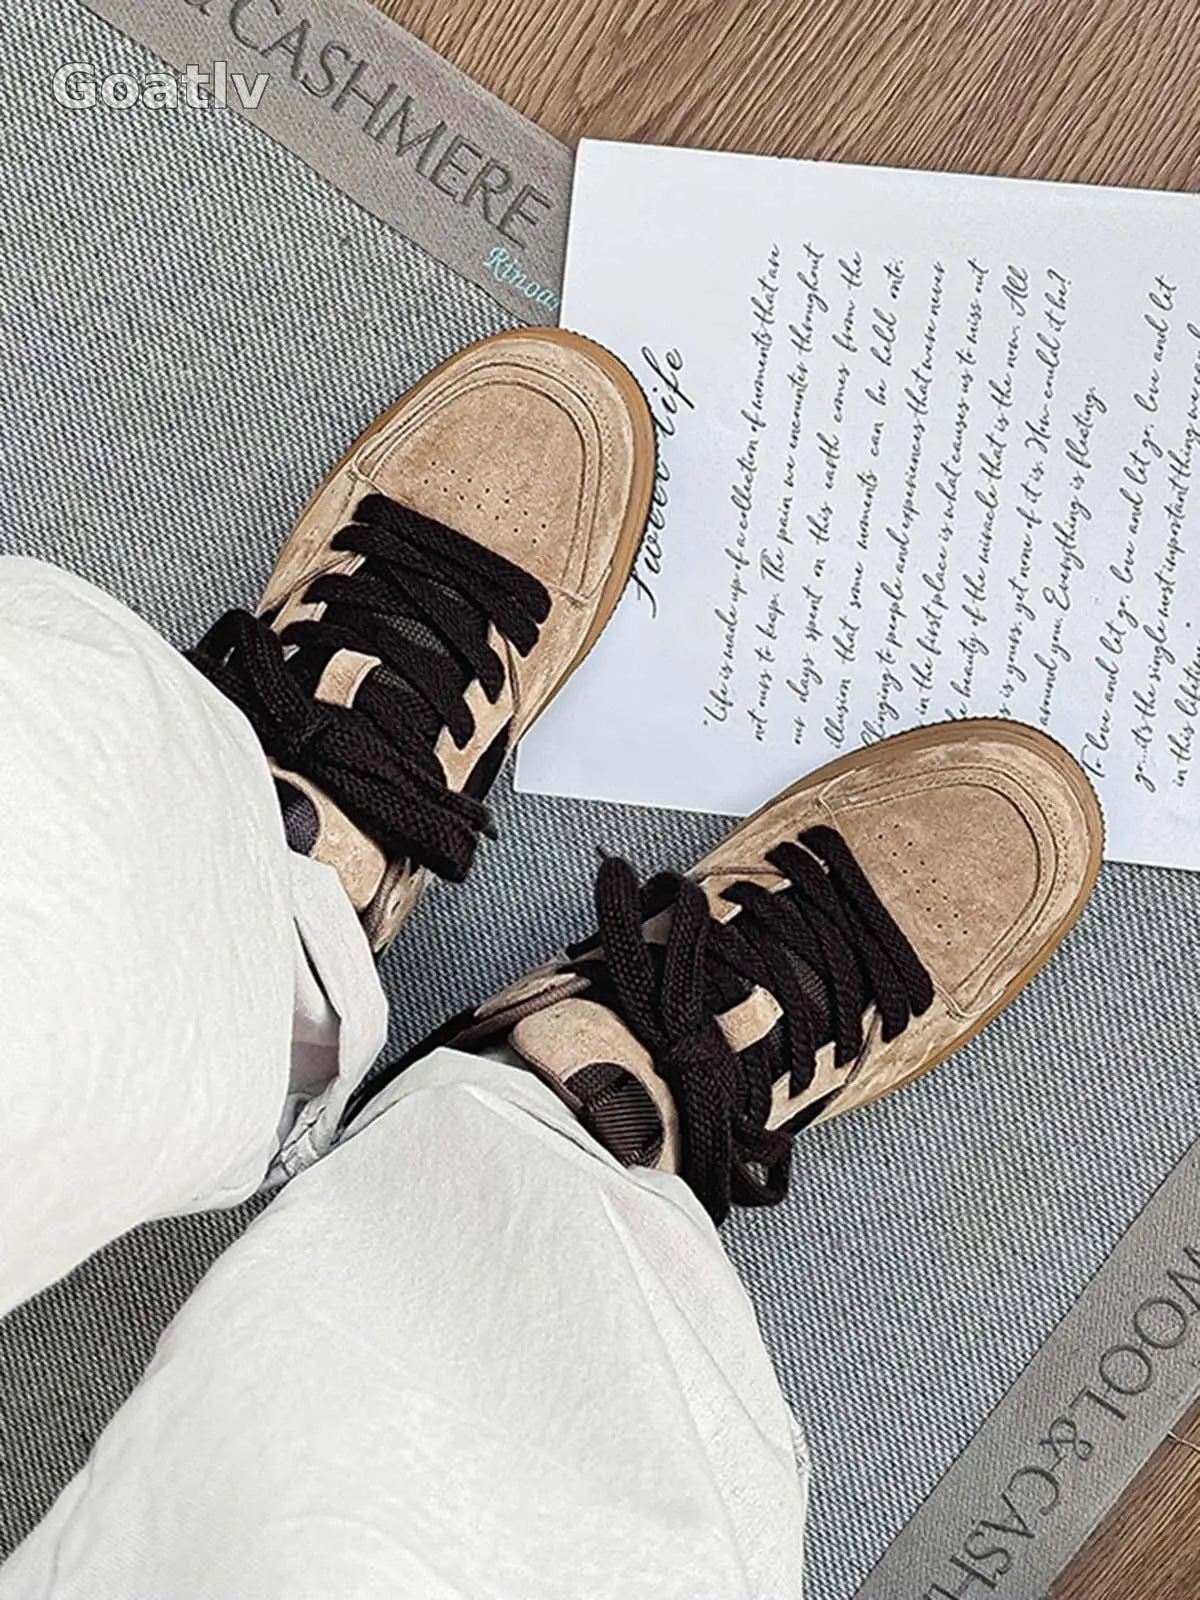 Goatlv
& CASHMERE
Rinoa
life
"Life is made up of a collection of moments that are
not ours to keep. The pain we encounter throughout
our days spent on this earth comes from the
illusion that some moments can be held onto.
Clinging to people and experiences that were never
in the first place is what causes us to miss out
beauty of the miracle that is the now. All
is yours, yet none of it is. How could it be?
around you. Everything is fleeting.
To love and let go, love and let go, love and let
go...it's the single most important thing
in this lifetime."
WOOL & CASH